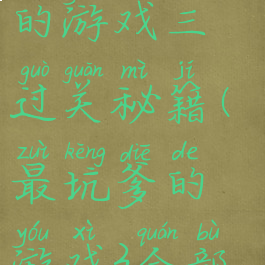 的游戏三
guò guān mì jí
过关秘籍(
zuì kēng diē de
最坑爹的
yóu xì quán bù
游戏3全部